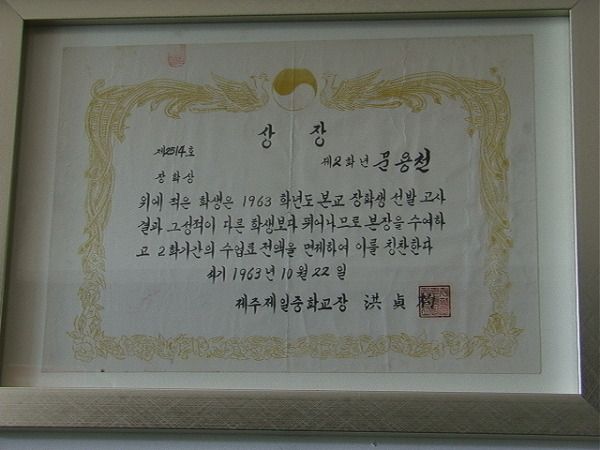 상 장
제2514호
제2학년 문용철
장학상
위에 적은 학생은 1963 학년도 본교 장학생 선발 고사
결과 그성적이 다른 학생보다 뛰어나므로 본장을 수여하
고 2학기간의 수업료 전액을 면제하여 이를 칭찬한다
서기 1963년 10월 22일
제주제일중학교장 洪貞杓